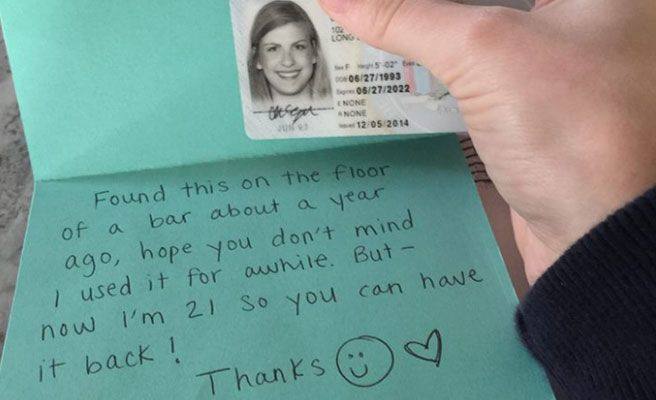 102
LONG
Sex F Height 5'-02" Eyes
DOB 06/27/1993
Expires 06/27/2022
E NONE
R NONE
Issued 12/05/2014
JUN 93
Found this on the floor
of a bar about a year
ago, hope you don't mind
I used it for awhile. But -
now I'm 21 so you can have
it back!
Thanks